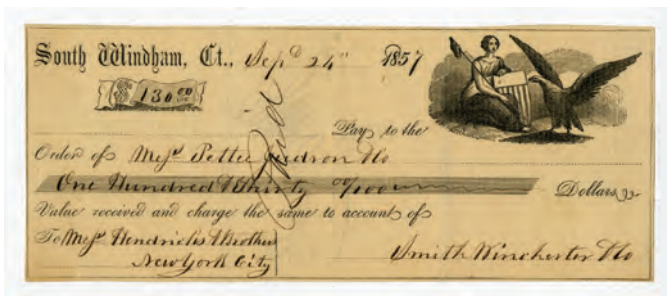 South Windham, Ct., Sepr 24" 1857
$ 130 00
Pay to the
Order of Messrs Pettee Judson & Co
One Hundred & Thirty 00/100 Dollars,
Paid
Value received and charge the same to account of
To Messrs Hendricks & Brother
New York City
Smith Winchester & Co